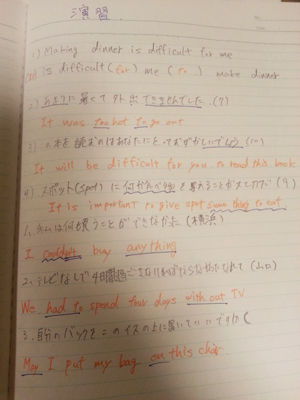 演習
1) Making dinner is difficult for me
It is difficult (for) me (to) make dinner
2) あまりに暑くて外出できませんでした. (7)
It was too hot to go out
3) 本を読むのはあなたにとって
It will be difficult for you to read this book
4) スポット(spot)に何か食べ物を与えることが大切
It is important to give spot some thing to eat
1. 私は何も買うことができなかった (横浜)
I couldn't buy anything
2. テレビなしで4日間過ごさなければならなかった (山口)
We had to spend four days with out TV
3. 自分のバックをこのイスの上に置いていいですか (
May I put my bag on this chair